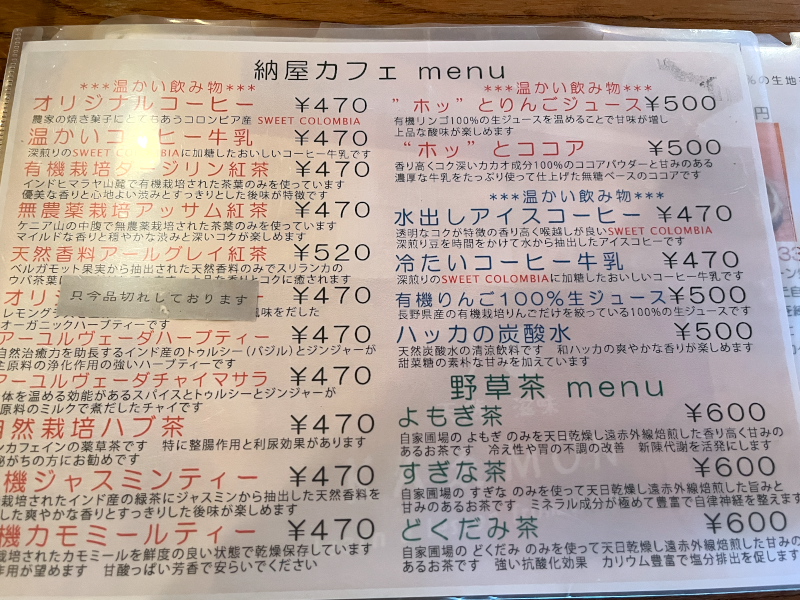 納屋カフェ menu
***温かい飲み物***
オリジナルコーヒー ¥470
農家の焼き菓子にとてもあうコロンビア産 SWEET COLOMBIA
温かいコーヒー牛乳 ¥470
深煎りのSWEET COLOMBIAに加糖したおいしいコーヒー牛乳です
有機栽培ダージリン紅茶 ¥470
インドヒマラヤ山麓で有機栽培された茶葉のみを使っています
優美な香りと心地よい渋みとすっきりとした後味が特徴です
無農薬栽培アッサム紅茶 ¥470
ケニア山の中腹で無農薬栽培された茶葉のみを使っています
マイルドな香りと穏やかな渋みと深いコクが楽しめます
天然香料アールグレイ紅茶 ¥520
ベルガモット果実から抽出された天然香料のみでスリランカの
ウバ茶葉に 香りとコクに癒されます
只今品切れしております
オリ ー ¥470
レモングラ 風味をだした
オーガニックハーブティーです
アーユルヴェーダハーブティー ¥470
自然治癒力を助長するインド産のトゥルシー(バジル)とジンジャーが
主原料の浄化作用の強いハーブティーです
アーユルヴェーダチャイマサラ ¥470
体を温める効能があるスパイスとトゥルシーとジンジャーが
原料のミルクで煮だしたチャイです
自然栽培ハブ茶 ¥470
ンカフェインの薬草茶です 特に整腸作用と利尿効果があります
がちの方にお勧めです
機ジャスミンティー ¥470
栽培されたインド産の緑茶にジャスミンから抽出した天然香料を
した爽やかな香りとすっきりした後味が楽しめます
機カモミールティー ¥470
栽培されたカモミールを鮮度の良い状態で乾燥保存しています
作用が望めます 甘酸っぱい芳香で安らいでください
***温かい飲み物***
”ホッ”とりんごジュース ¥500
有機リンゴ100%の生ジュースを温めることで甘味が増し
上品な酸味が楽しめます
”ホッ”とココア ¥500
香り高くコク深いカカオ成分100%のココアパウダーと甘みのある
濃厚な牛乳をたっぷり使って仕上げた無糖ベースのココアです
***温かい飲み物***
水出しアイスコーヒー ¥470
透明なコクが特徴の香り高く喉越しが良いSWEET COLOMBIA
深煎り豆を時間をかけて水から抽出したアイスコーヒーです
冷たいコーヒー牛乳 ¥470
深煎りのSWEET COLOMBIAに加糖したおいしいコーヒー牛乳です
有機りんご100%生ジュース ¥500
長野県産の有機栽培りんごだけを絞っている100%の生ジュースです
ハッカの炭酸水 ¥500
天然炭酸水の清涼飲料です 和ハッカの爽やかな香りが楽しめます
甜菜糖の素朴な甘みを加えています
野草茶 menu
よもぎ茶 ¥600
自家圃場の よもぎ のみを天日乾燥し遠赤外線焙煎した香り高く甘みの
あるお茶です 冷え性や胃の不調の改善 新陳代謝を活発にします
すぎな茶 ¥600
自家圃場の すぎな のみを使って天日乾燥し遠赤外線焙煎した旨みと
甘みのあるお茶です ミネラル成分が極めて豊富で自律神経を整えます
どくだみ茶 ¥600
自家圃場の どくだみ のみを使って天日乾燥し遠赤外線焙煎した甘みの
あるお茶です 強い抗酸化効果 カリウム豊富で塩分排出を促します
%の生地
円